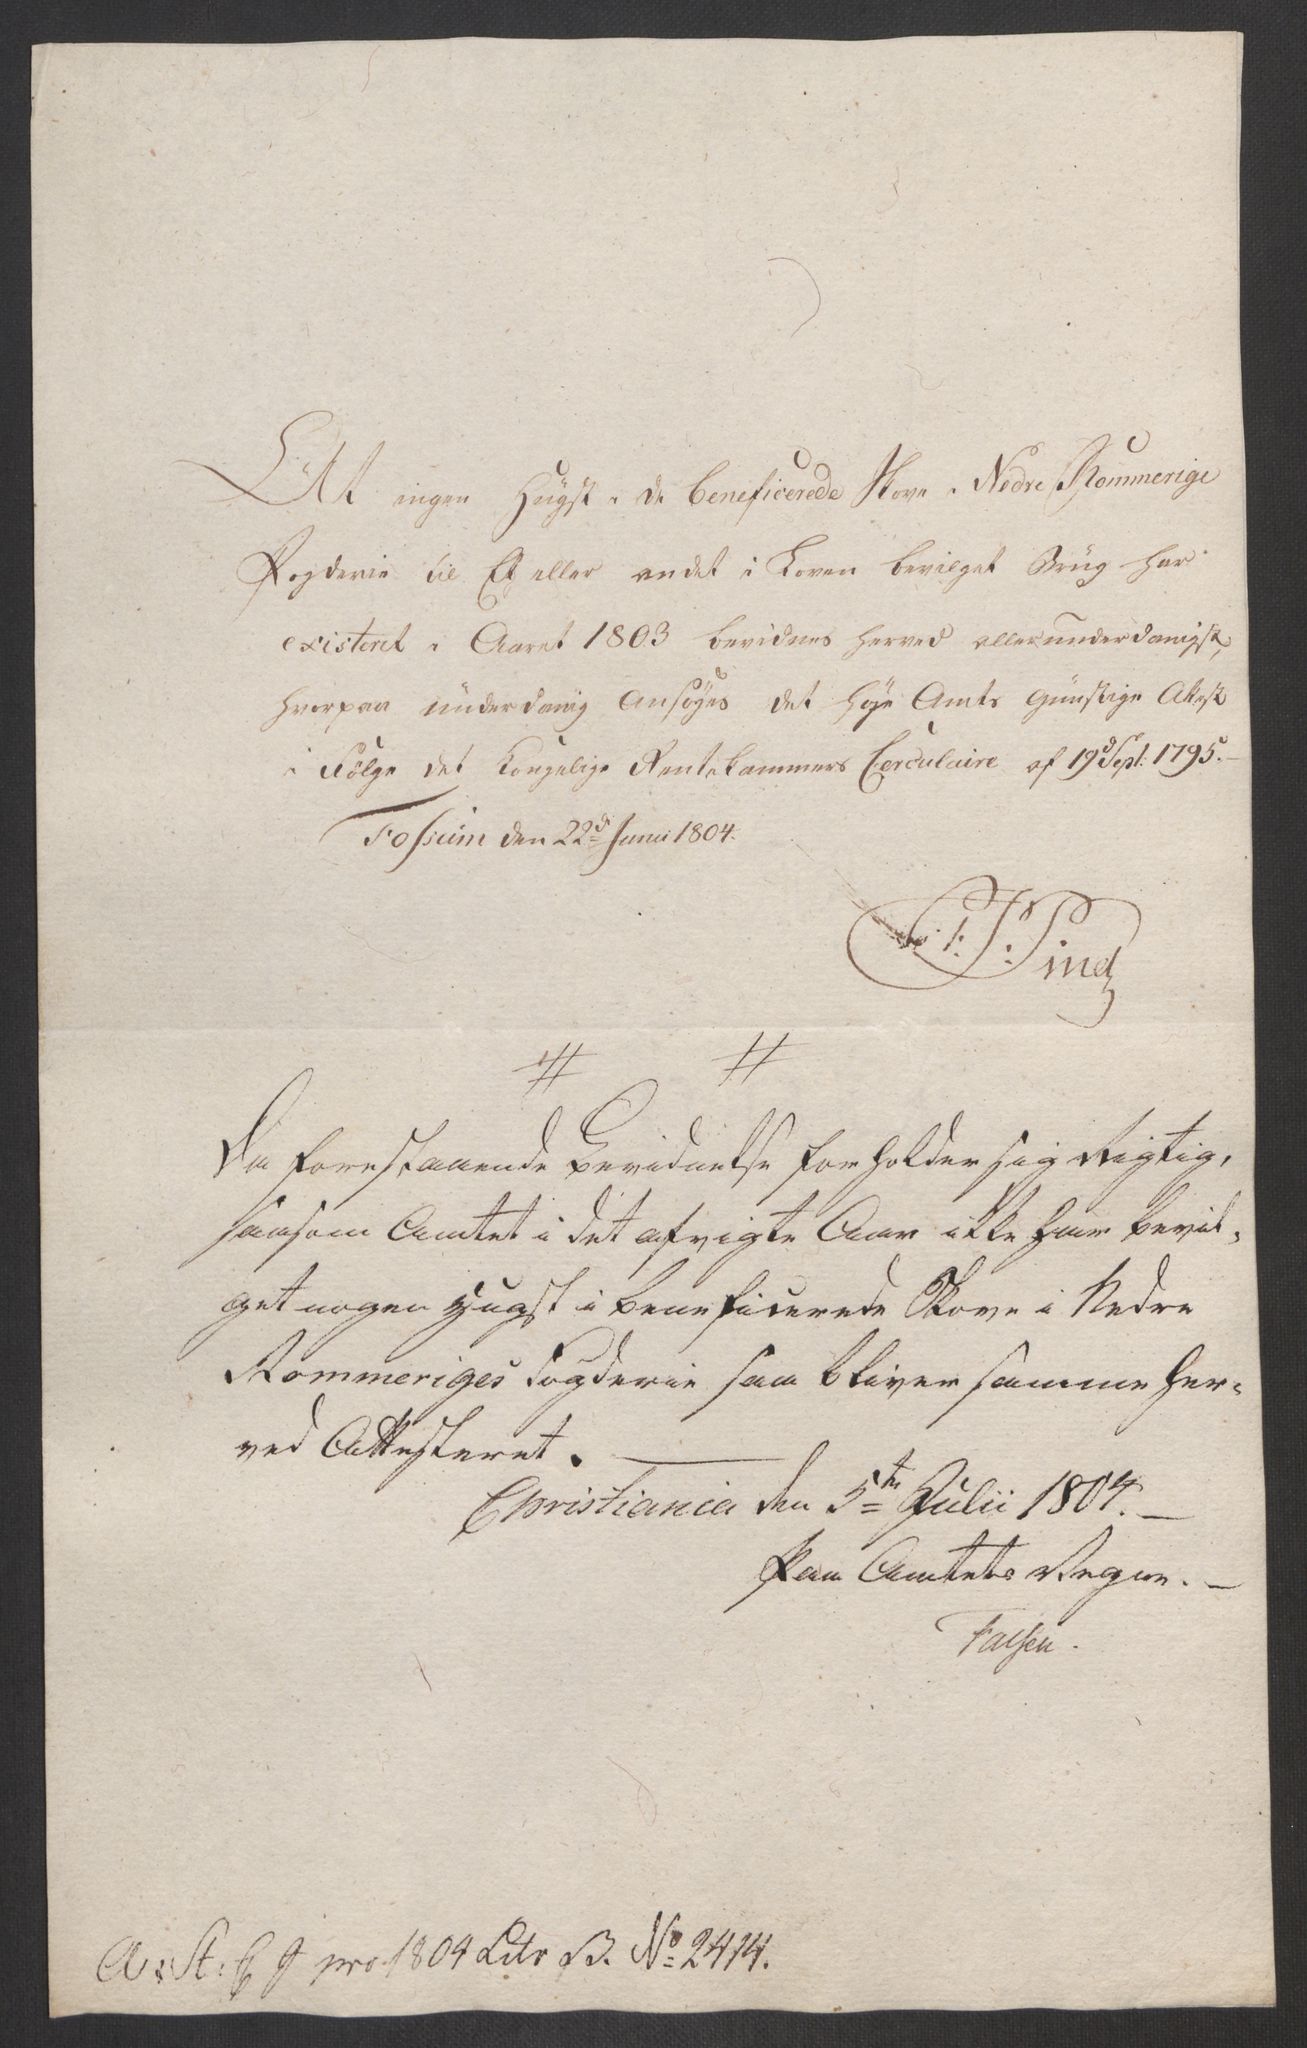 At ingen Hugst i de beneficerede Skove i Nedre Rommerige
Fogderie til Et eller andet i Loven bevilget Brug har
existeret i Aaret 1803 bevidnes herved allerunderdanigst,
hvorpaa underdanig ansøges det høje Amts gunstige Attest
i Følge det Kongelige Rentekammers Cerculaire af 19d Sept: 1795.
Fossum den 22d Junii 1804.
Pind
Da forestaaende Bevidnelse forholder sig Rigtig,
saasom Amtet i det afvigte Aar ikke haver bevil-
get nogen Hugst i beneficerede Skove i Nedre
Rommeriges Fogderie saa bliver samme her-
ved Attesteret.
Christiania den 5te Julii 1804.
Paa Amtets Vegne.
Falsen.
pro 1804 Litr B. No 2414.